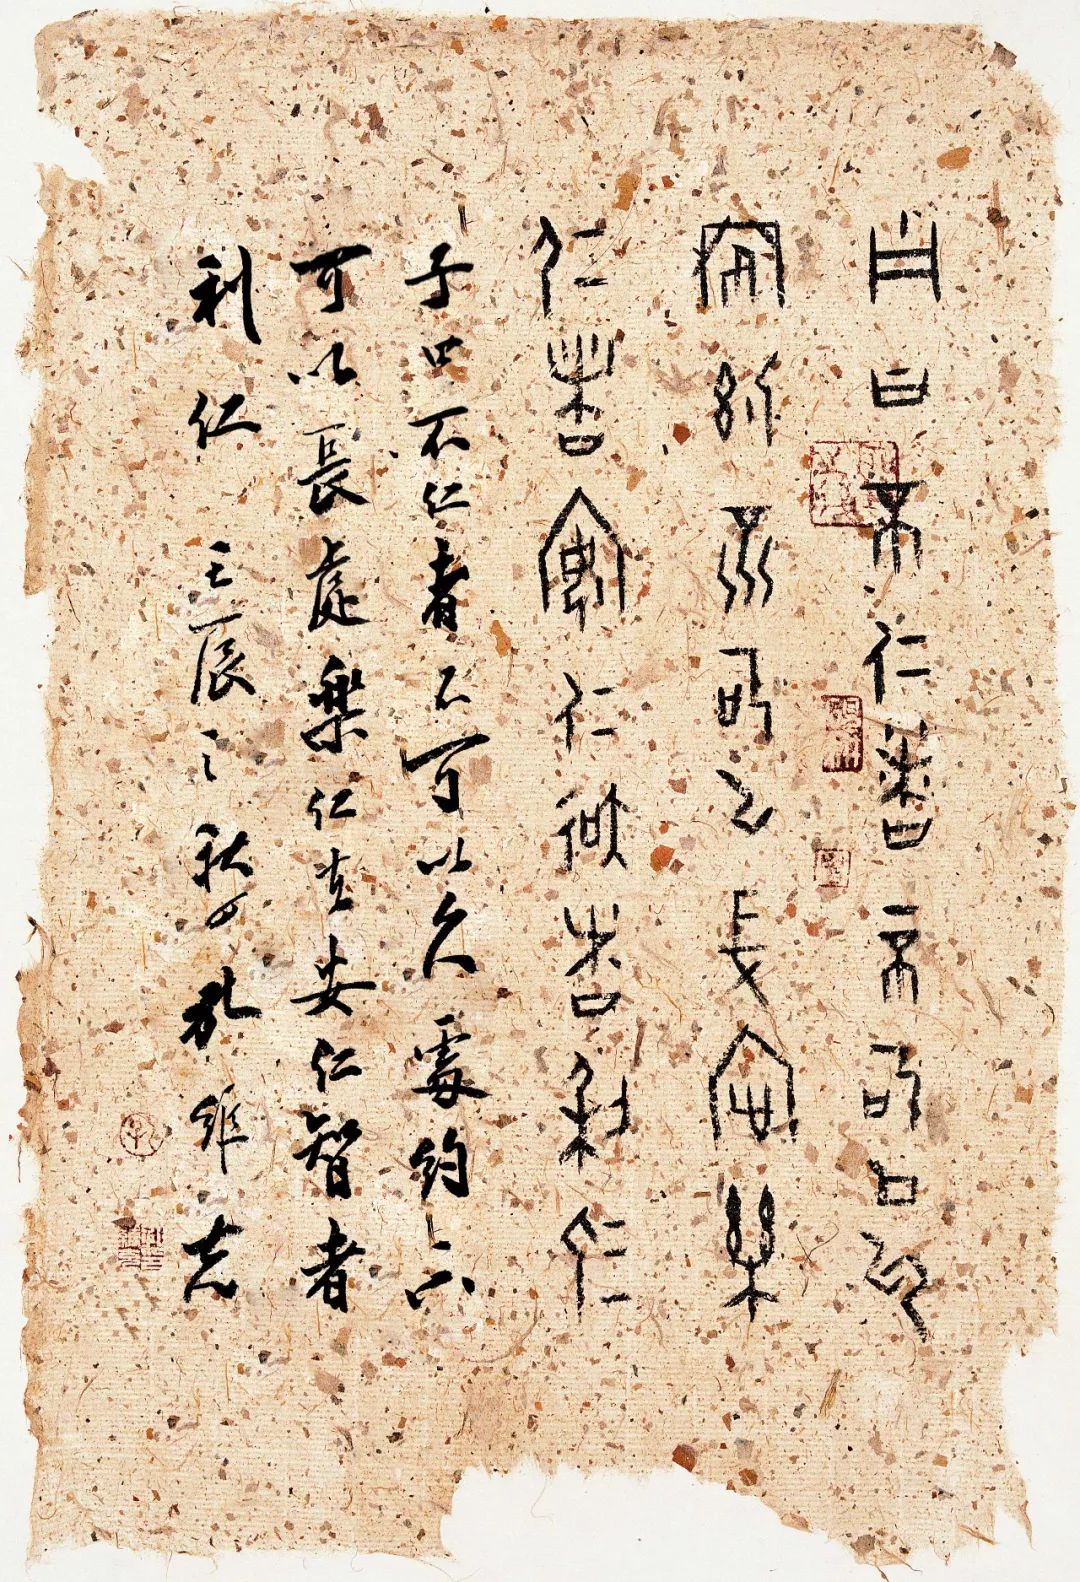 子曰不仁者不可以久
處約不可以長處樂
仁者安仁智者利仁
子曰不仁者不可以久處約不
可以長處樂仁者安仁智者
利仁 壬辰之秋孔維克